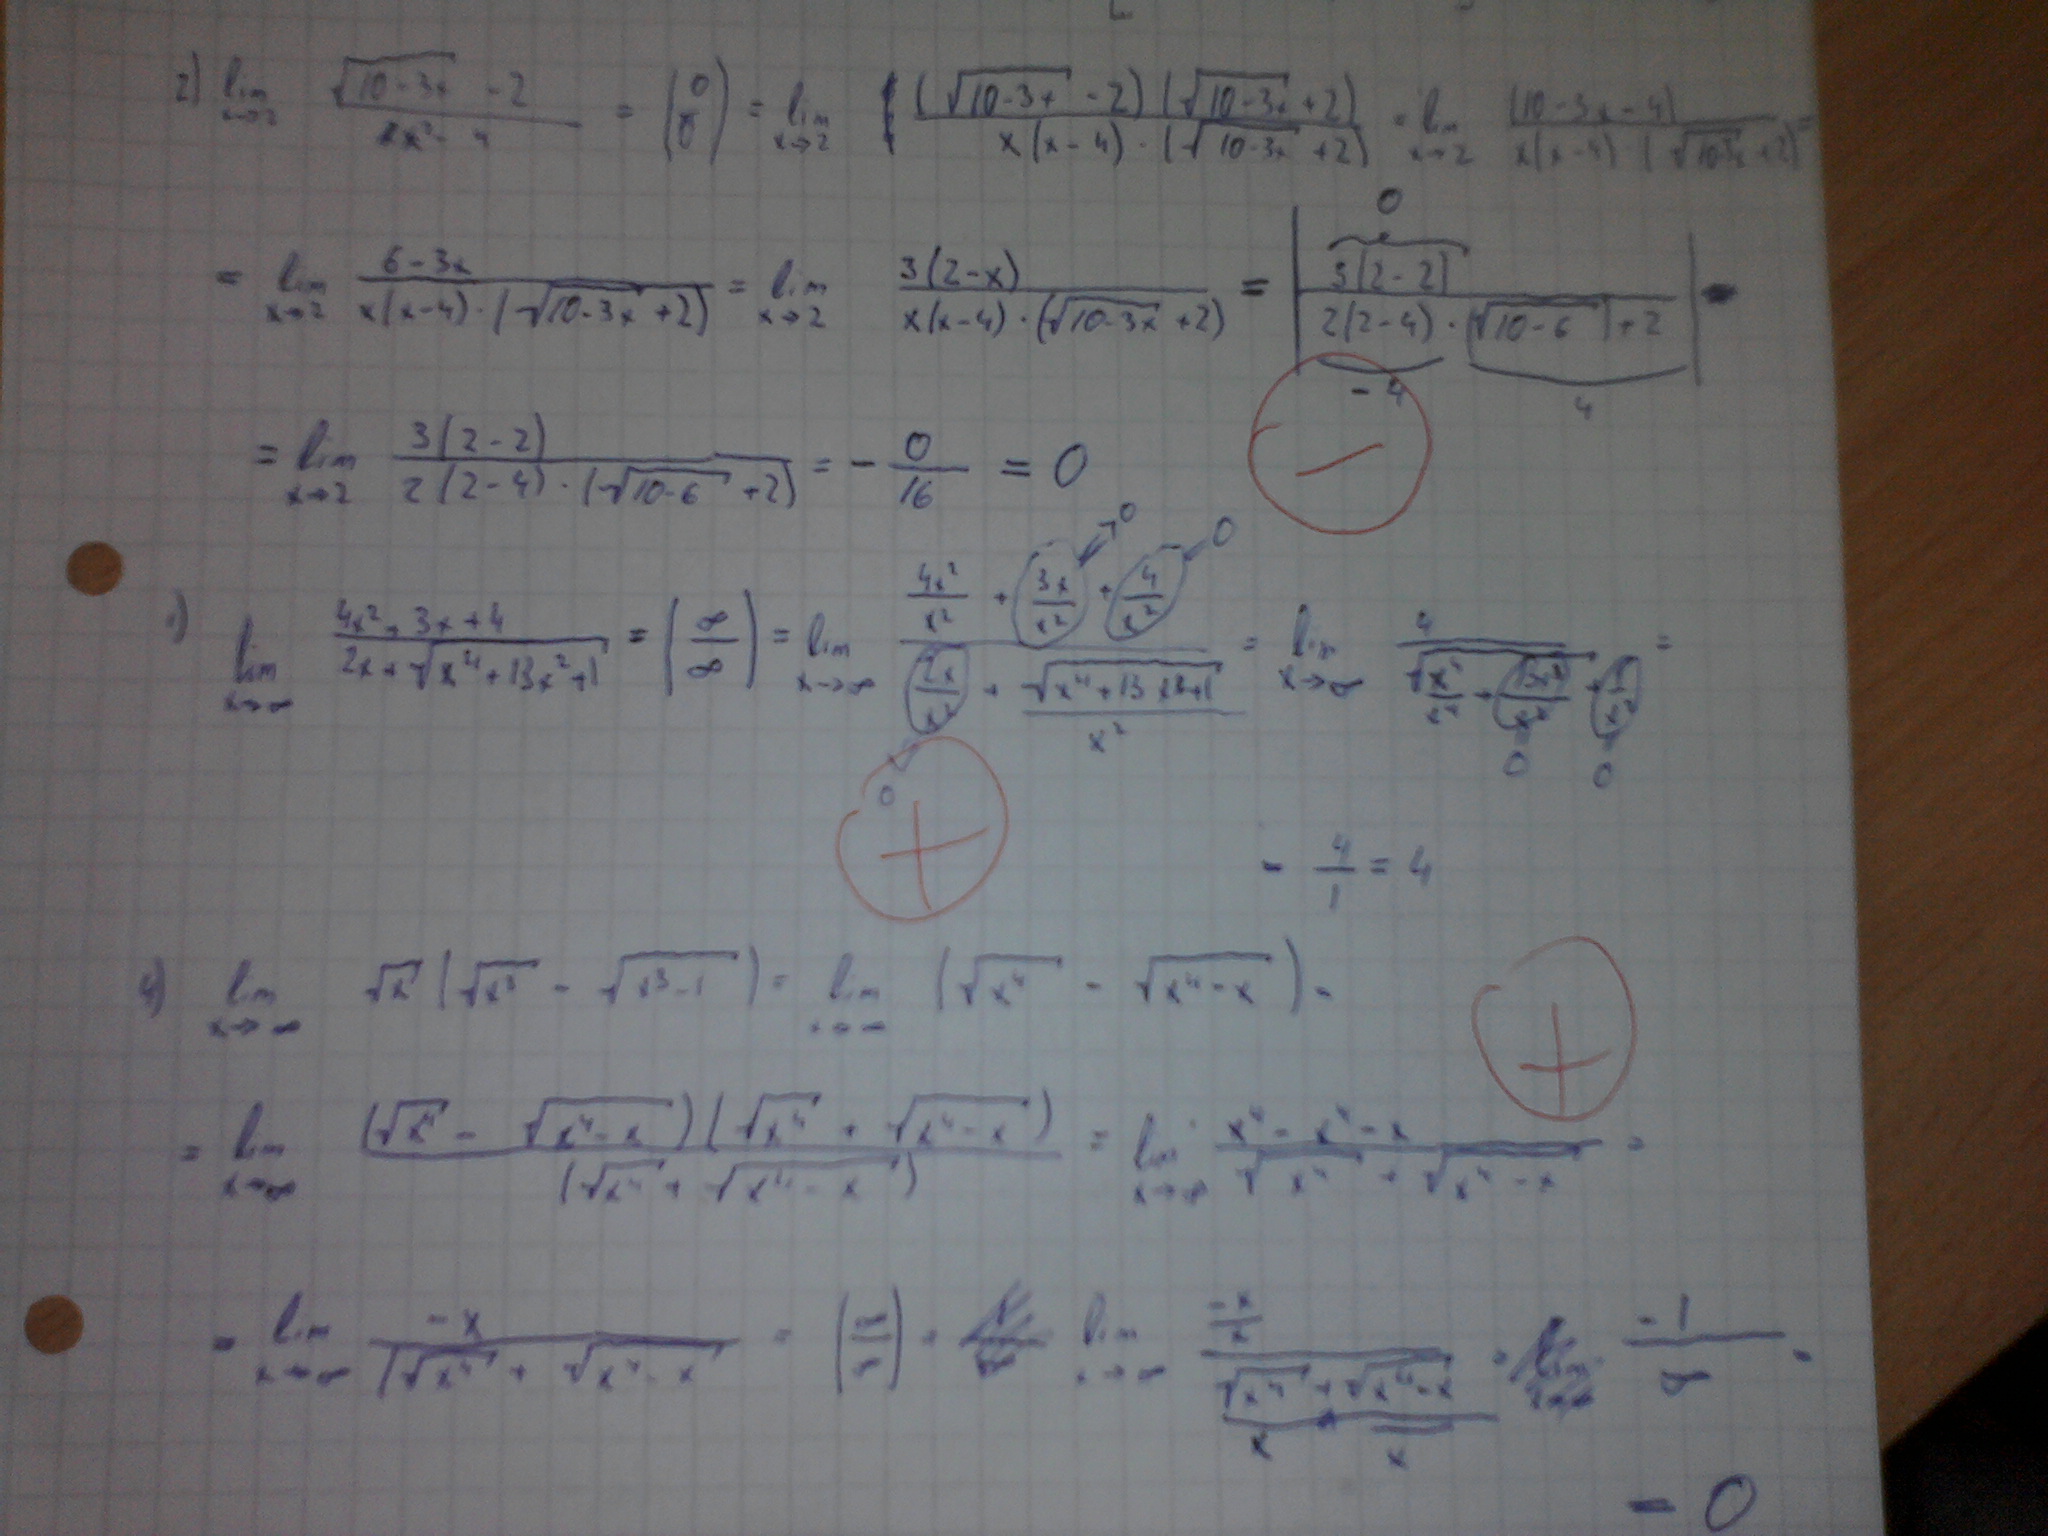 2) lim x→2 (√(10-3x) - 2)/(x² - 4) = (0/0) = lim x→2 ((√(10-3x) - 2)(√(10-3x) + 2))/(x(x-4)·(√(10-3x) + 2)) = lim x→2 (10-3x-4)/(x(x-4)·(√(10-3x) + 2)) =
= lim x→2 (6-3x)/(x(x-4)·(√(10-3x) + 2)) = lim x→2 3(2-x)/(x(x-4)·(√(10-3x) + 2)) = | 3(2-2)/(2(2-4)·(√(10-6)) + 2) | = 0 -4 4
= lim x→2 3(2-2)/(2(2-4)·(√(10-6) + 2)) = - 0/16 = 0 −
1) lim x→∞ (4x² + 3x + 4)/(2x + √(x⁴ + 13x² + 1)) = (∞/∞) = lim x→∞ (4x²/x² + 3x/x² + 4/x²)/(2x/x² + √(x⁴ + 13x² + 1)/x²) = lim x→∞ 4/√(x⁴/x⁴ + 13x²/x⁴ + 1/x⁴) = →0 0 0 0 0
+ = 4/1 = 4
4) lim x→∞ √x (√x³ - √(x³-1)) = lim x→∞ (√x⁴ - √(x⁴-x)) = +
= lim x→∞ ((√x⁴ - √(x⁴-x))(√x⁴ + √(x⁴-x)))/(√x⁴ + √(x⁴-x)) = lim x→∞ (x⁴ - x⁴ - x)/(√x⁴ + √(x⁴-x)) =
= lim x→∞ -x/(√x⁴ + √(x⁴-x)) = (∞/∞) = lim x→∞ (-x/x)/(√x⁴/x + √(x⁴-x)/x) = -1/∞ =
= 0